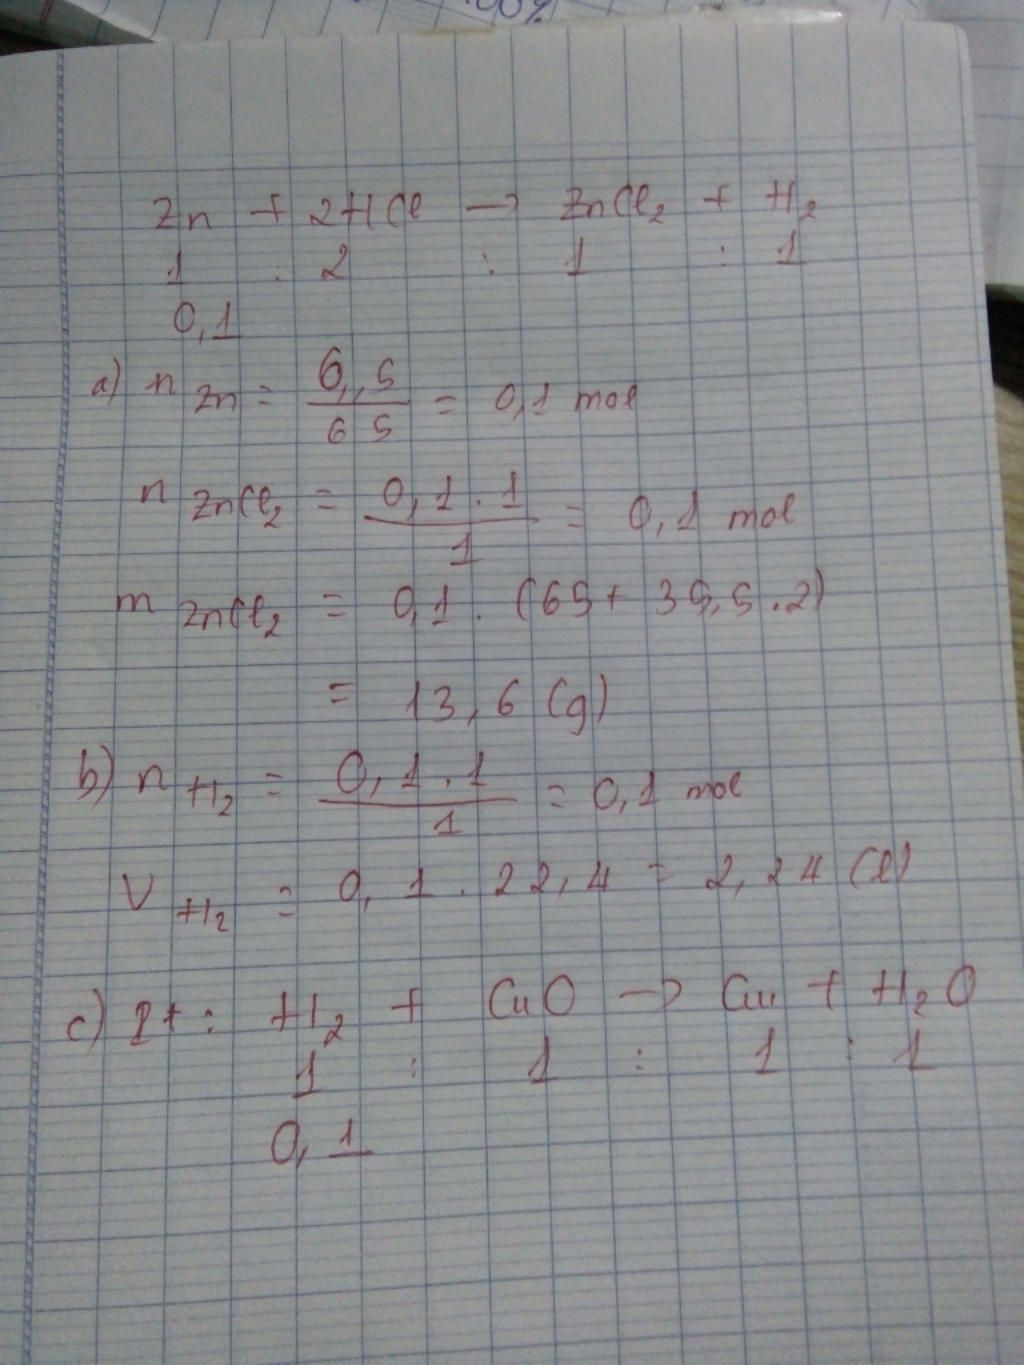 00%
Zn + 2HCl → ZnCl₂ + H₂
1 : 2 : 1 : 1
0,1
a) n Zn = 6,5 / 65 = 0,1 mol
n ZnCl₂ = 0,1 . 1 / 1 = 0,1 mol
m ZnCl₂ = 0,1 . (65 + 35,5 . 2)
= 13,6 (g)
b) n H₂ = 0,1 . 1 / 1 = 0,1 mol
V H₂ = 0,1 . 22,4 = 2,24 (l)
c) Pt : H₂ + CuO → Cu + H₂O
1 : 1 : 1 : 1
0,1